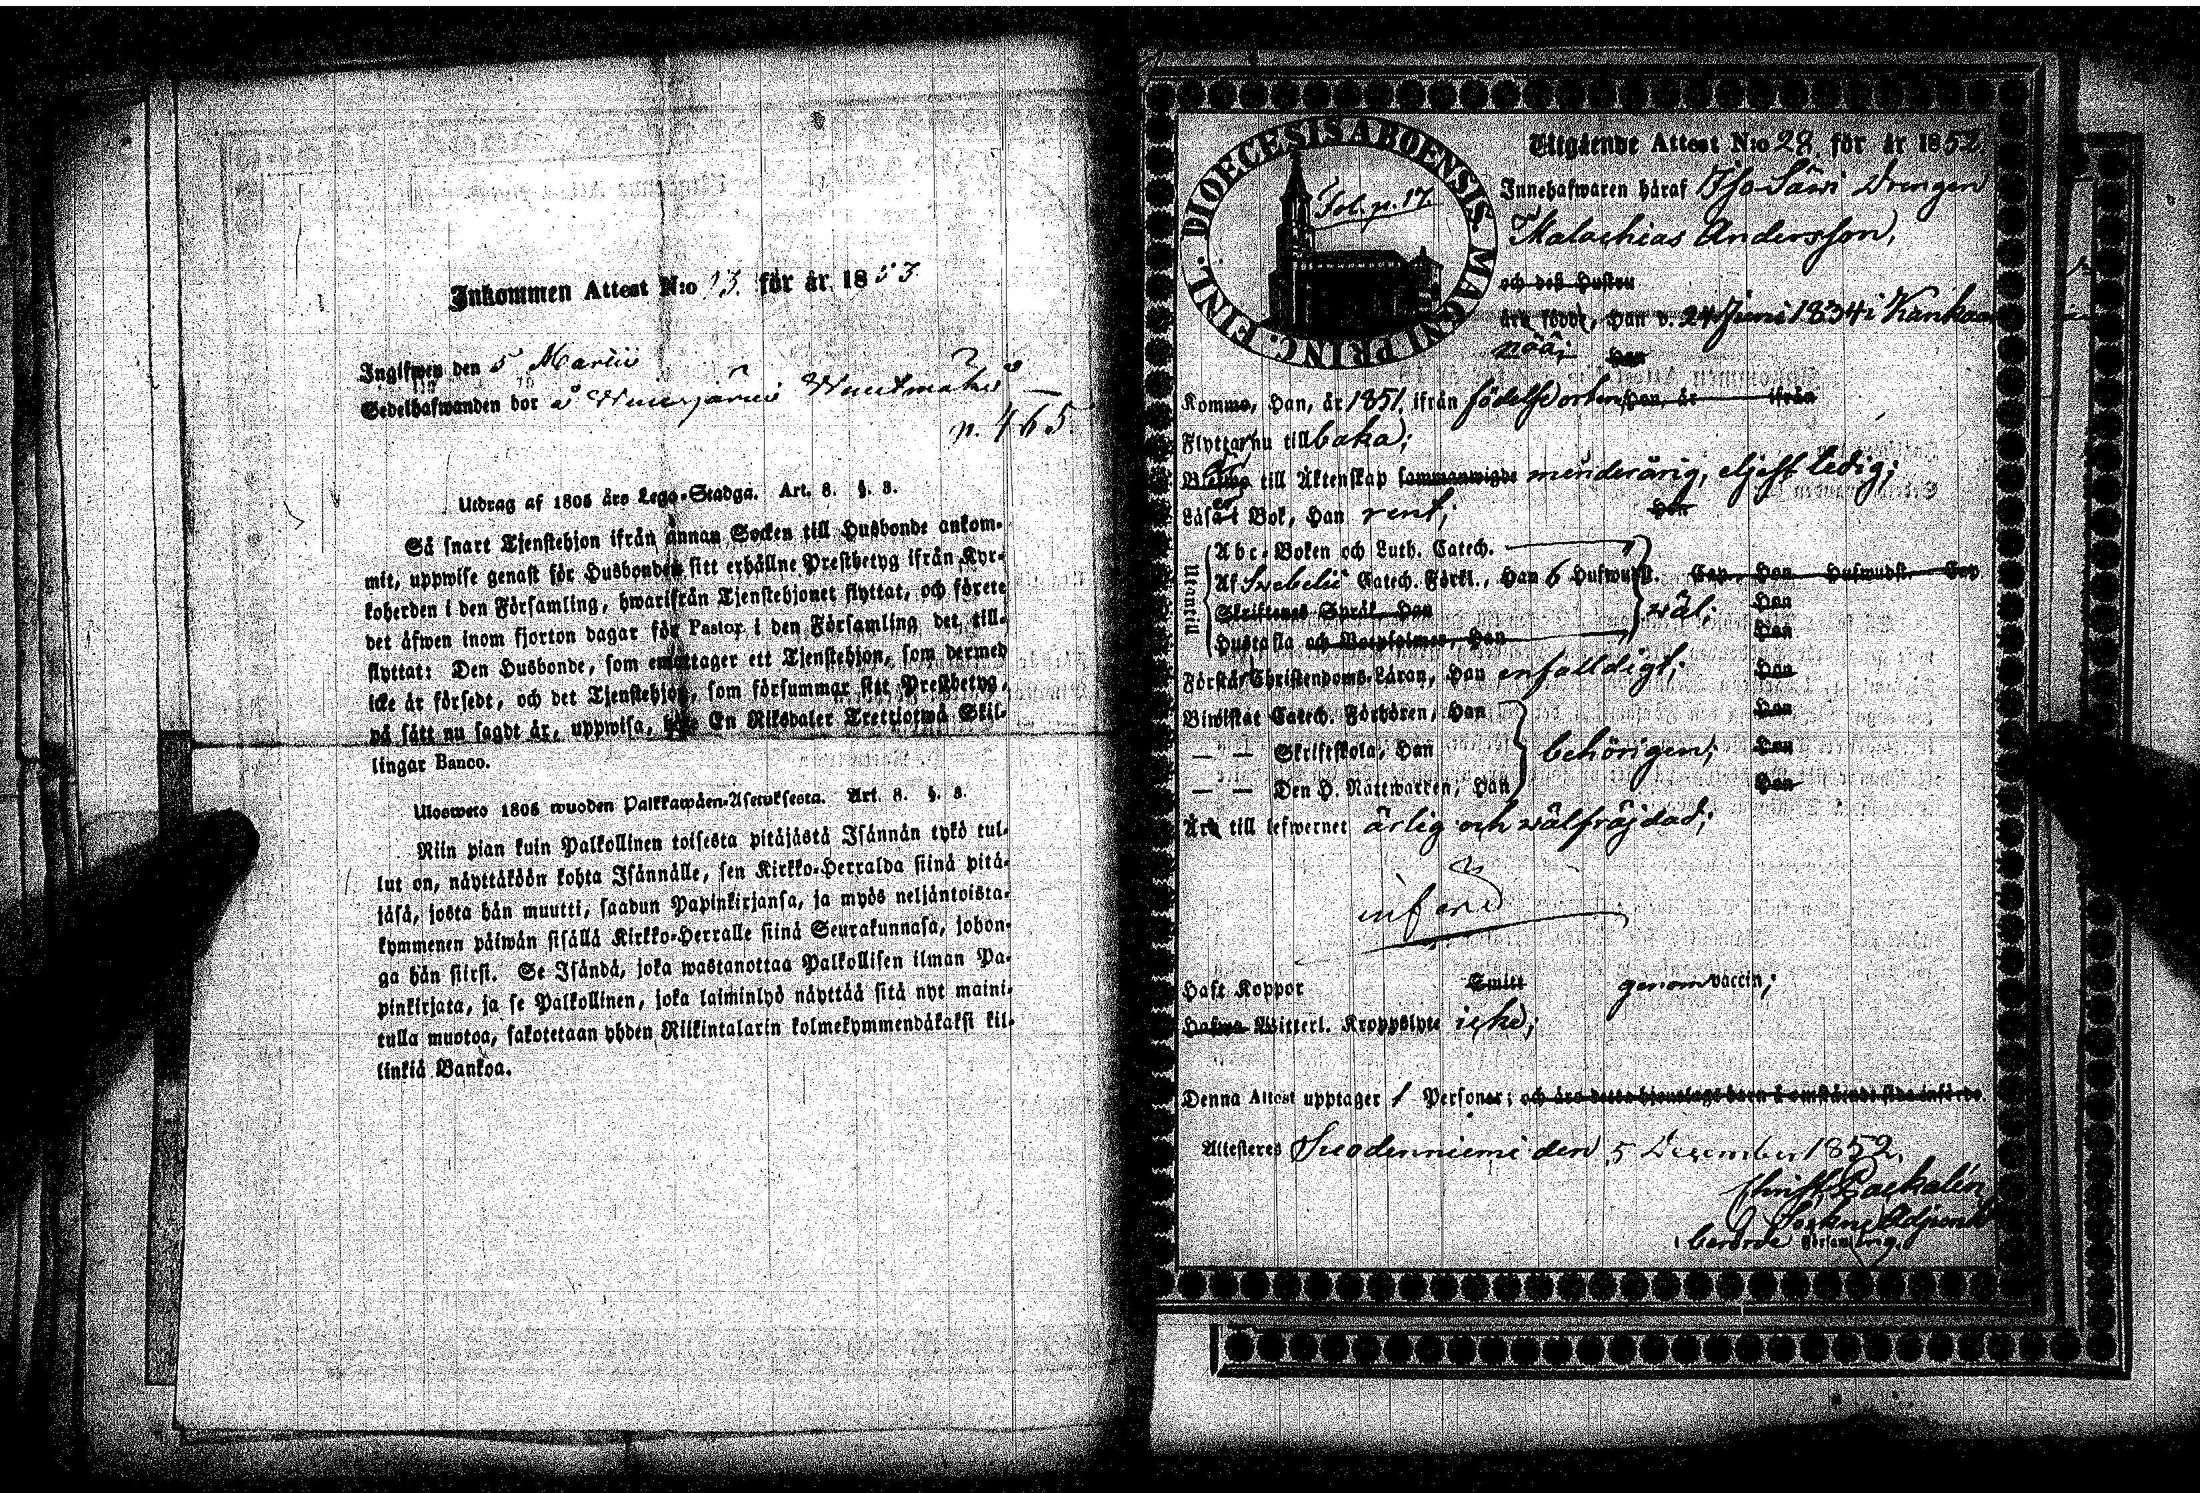 Inkommen Attest N:o 13. för år 1853
Ingifwen den 5 Martii
Sedelhafwanden bor å
p. 465.
Utdrag af 1805 års Lego-Stadga. Art. 8. §. 8.
Så snart Tjenstehjon ifrån annan Socken till Husbonde ankom-
mit, uppwise genast för Husbonden sitt erhållne Prestbetyg ifrån Kyr-
koherden i den Församling, hwarifrån Tjenstehjonet flyttat, och förete
det äfwen inom fjorton dagar för Pastor i den Församling det till-
flyttat: Den Husbonde, som emottager ett Tjenstehjon, som dermed
icke är försedt, och det Tjenstehjon, som försummar sitt Prestbetyg,
på sätt nu sagdt är, uppwisa, böte En Riksdaler Trettiotwå Skil-
lingar Banco.
Ulosweto 1805 wuoden Palkkawäen-Asetuksesta. Art. 8. §. 8.
Niin pian kuin Palkollinen toisesta pitäjästä Isännän tykö tul-
lut on, näyttäköön kohta Isännälle, sen Kirkko-Herralda siinä pitä-
jäsä, josta hän muutti, saadun Papinkirjansa, ja myös neljäntoista-
kymmenen päiwän sisällä Kirkko-Herralle siinä Seurakunnasa, johon-
ga hän siirsi. Se Isändä, joka wastanottaa Palkollisen ilman Pa-
pinkirjata, ja se Palkollinen, joka laiminlyö näyttää sitä nyt maini-
tulla muotoa, sakotetaan yhden Riikintalarin kolmekymmendäkaksi kil-
linkiä Bankoa.
DIOECESIS ABOENSIS MAGNI PRINC. FINL.
Fol. p. 17.
Utgående Attest N:o 28 för år 1852.
Innehafwaren häraf Iso Säwi Drengen
Malachias Andersson,
och dess Hustru
äro födde, Han d. 24 Juni 1834 i Kankaa
Hon
Komne, Han, år 1851, ifrån födelseorten Hon, år ifrån
Flyttar nu till baka;
är till Äktenskap sammanwigde minderårig, eljest ledig;
Läsa i Bok, Han rent; Hon
Utantill
Abc-Boken och Luth. Catech.
Af Swebelii Catech. Förkl., Han 6 Hufwudst. Cap., Hon Hufwudst. Cap
Skriftenes Språk, Han wäl; Hon
Hustafla och Botpsalmer, Han Hon
Förstår Christendoms-Läran, Han enfalldigt; Hon
Biwistat Catech. Förhören, Han Hon
— — Skriftskola, Han behörigen; Hon
— — Den H. Nattwarden, Han Hon
Äro till lefwernet ärlig och wälfräjdad;
Haft Koppor Smitt genom vaccin;
Hafwa Witterl. Kroppslyte icke;
Denna Attest upptager 1 Personer; och äro detta hjonelags barn å omstående sida införde.
Attesteres Suodenniemi den 5 December 1852.
Sockne Adjunct
i berörde Församling.